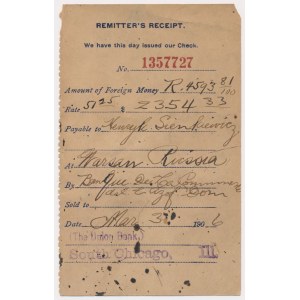 REMITTER'S RECEIPT.
We have this day issued our Check.
No. 1357727
Amount of Foreign Money R. 4593 81/100
Rate 51 25 $ 2354 33
Payable to Henryk Sienkiewicz
At Warsaw Russia
By Banque De
Sold to
Date Mar 3 1906
(The Union Bank)
South Chicago, Ill